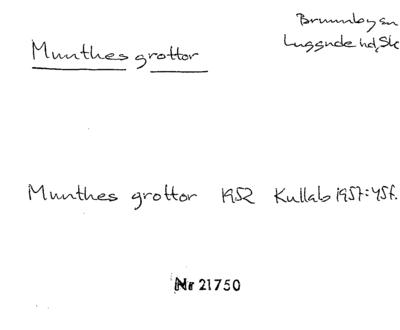 Brunnby sn
Luggude hd, Sk
Munthes grottor
Munthes grottor 1952 Kullab 1957: 45f.
Nr 21750